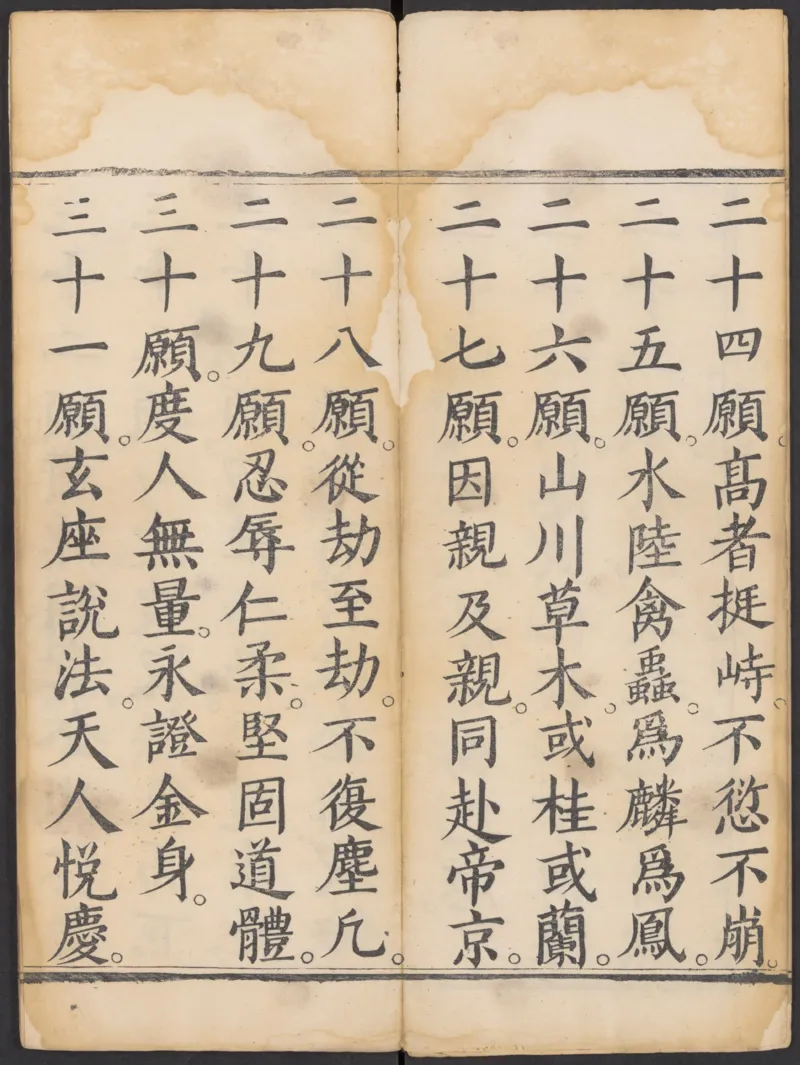 二十四願。高者挺峙。不愆不崩。
二十五願。水陸禽蟲。爲麟爲鳳。
二十六願。山川草木。或桂或蘭。
二十七願。因親及親。同赴帝京。
二十八願。從劫至劫。不復塵凡。
二十九願。忍辱仁柔。堅固道體。
三十願。度人無量。永證金身。
三十一願。玄座說法。天人悅慶。